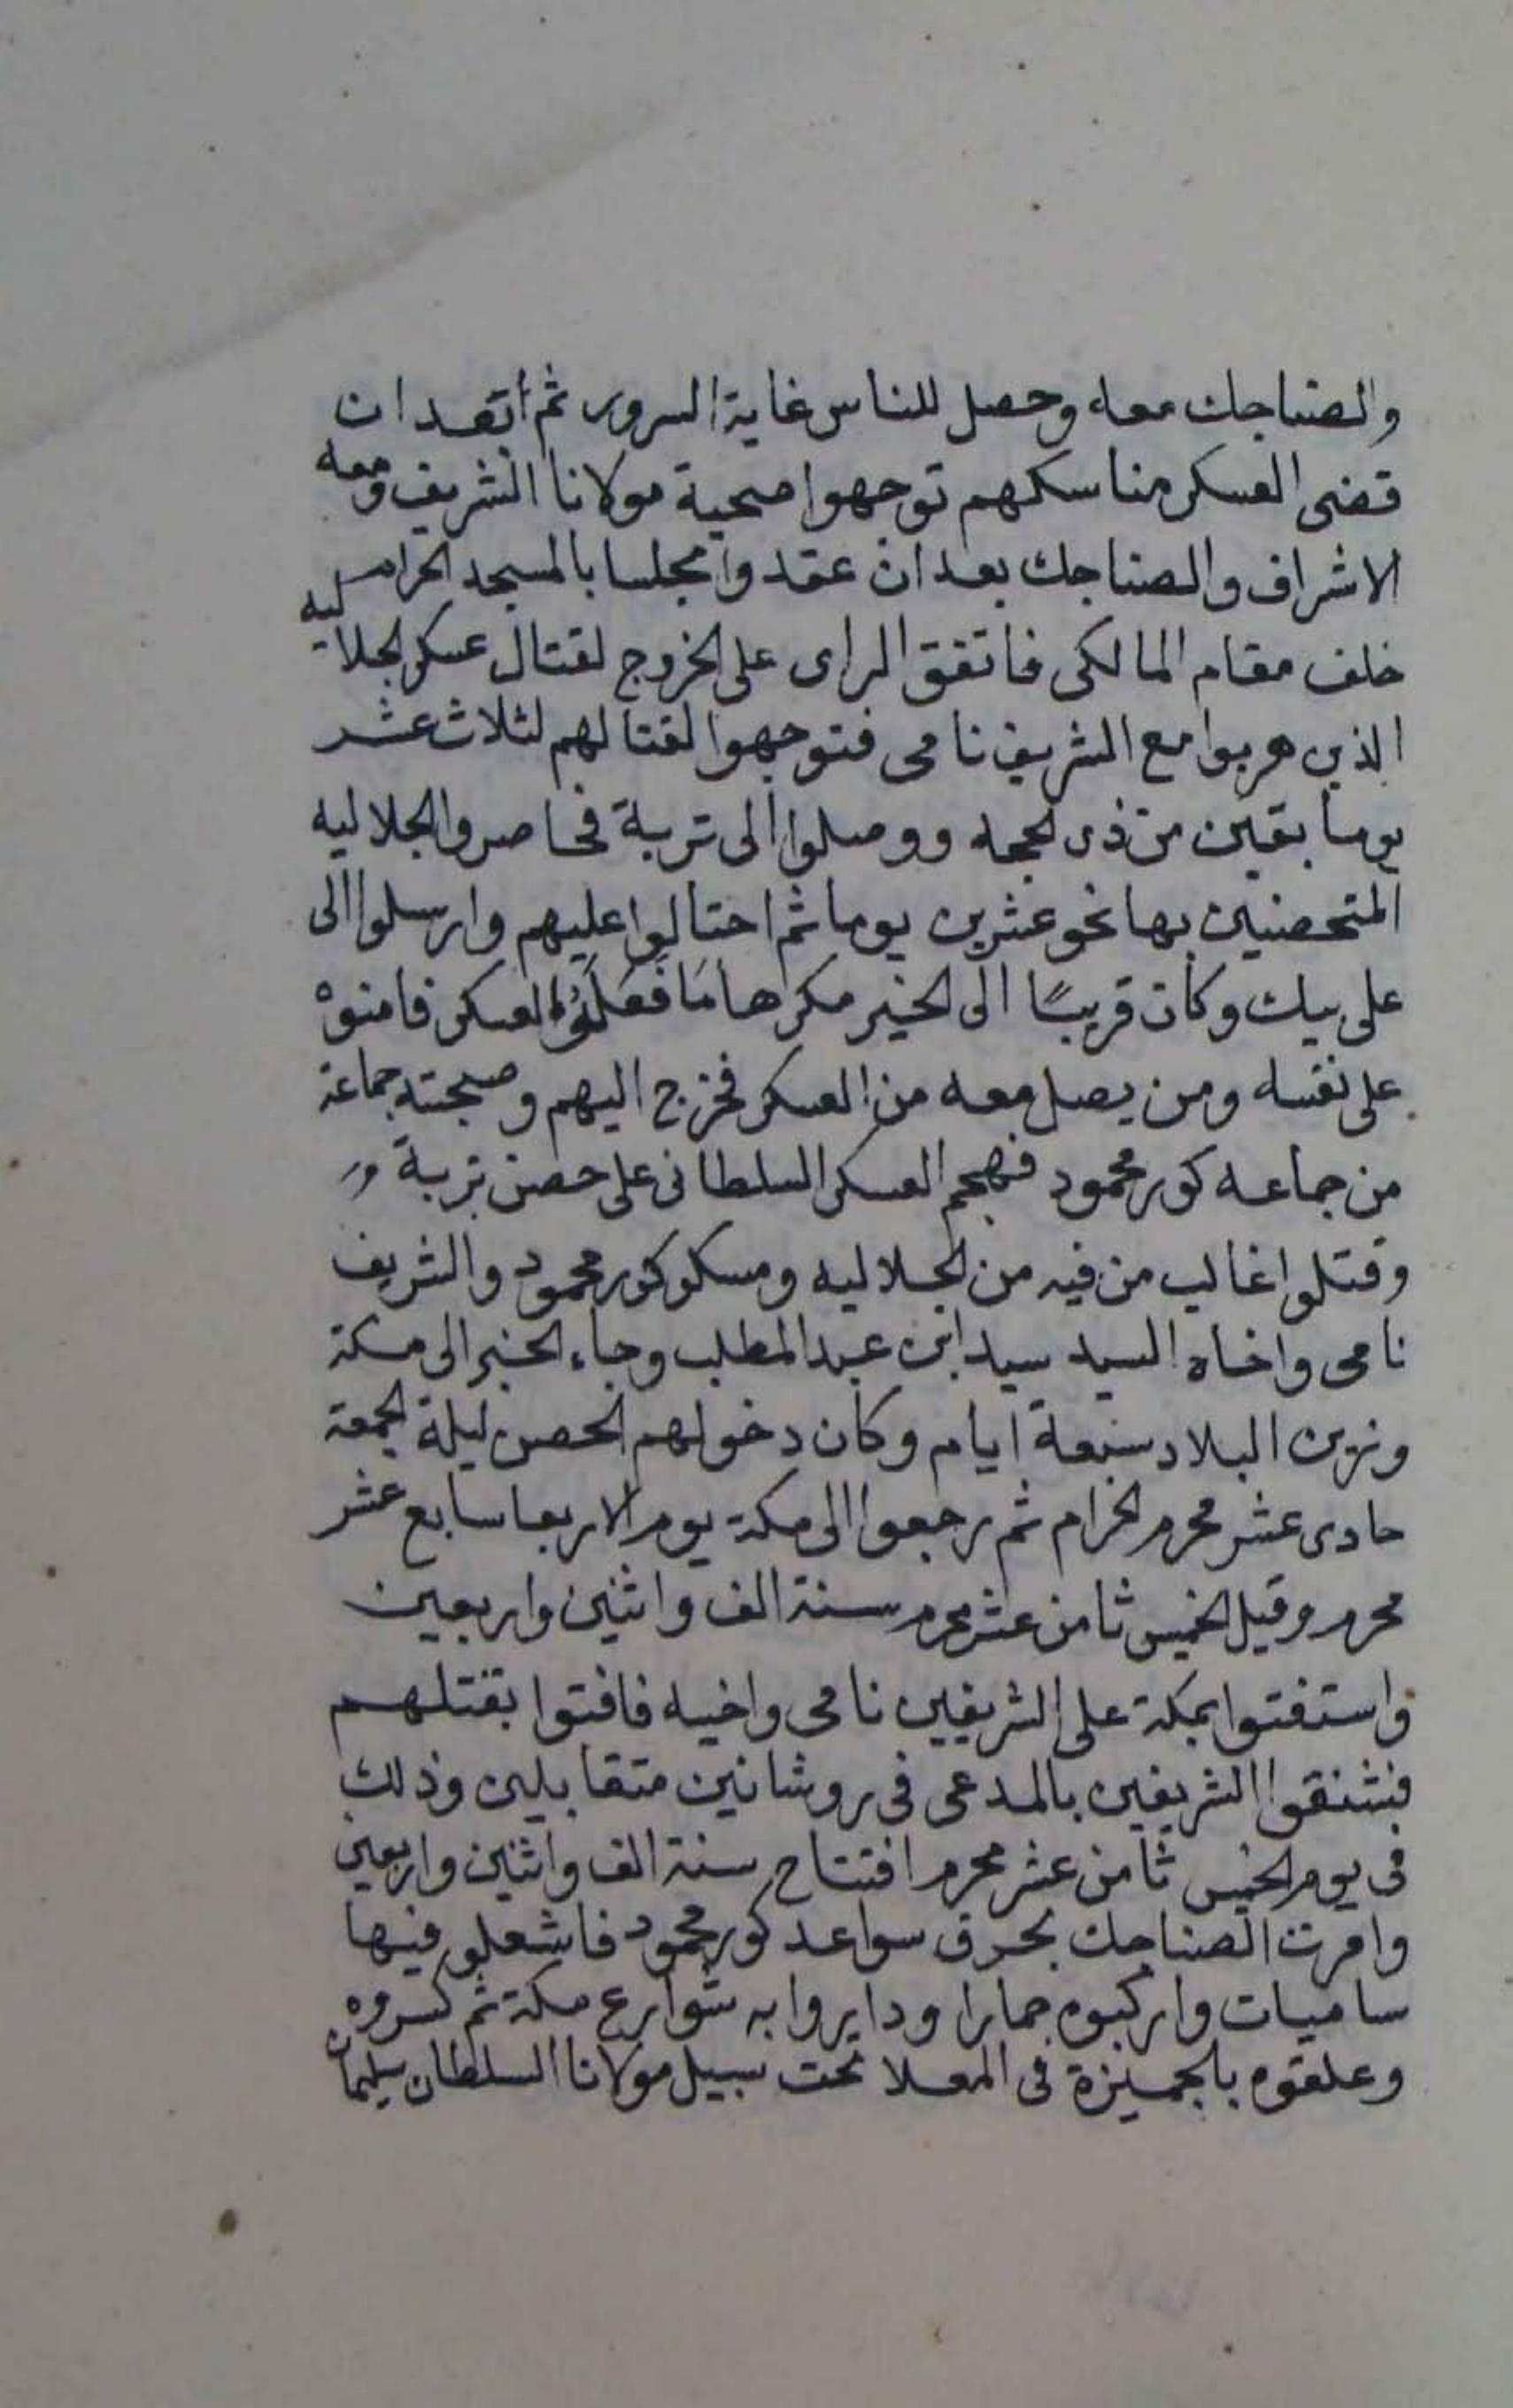 والصناجك معه وحصل للناس غاية السرور ثم بعد ان
قضى العسكر مناسكهم توجهوا صحبة مولانا الشريف ومعه
الاشراف والصناجك بعد ان عقدوا مجلسا بالمسجد الحرام
خلف مقام المالكى فاتفق الراى على الخروج لقتال عسكر الجلاليه
الذين هربوا مع الشريف نامى فتوجهوا لقتالهم لثلاث عشر
يوما بقين من ذى الحجه ووصلوا الى تربة فحاصروا الجلاليه
المتحصنين بها نحو عشرين يوما ثم احتالوا عليهم وارسلوا الى
على بيك وكان قريبًا الى الخير مكرها العسكر فامنوه
على نفسه ومن يصل معه من العسكر فخرج اليهم وصحبته جماعة
من جماعه كور محمود فهجم العسكر السلطانى على حصن تربة
وقتلوا غالب من فيه من الجلاليه ومسكو كور محمود والشريف
نامى واخاه السيد سيد ابن عبد المطلب وجاء الخبر الى مكة
وزين البلاد سبعة ايام وكان دخولهم الحصن ليلة الجمعة
حادى عشر محرم الحرام ثم رجعوا الى مكة يوم الاربعا سابع عشر
محرم وقيل الخميس ثامن عشر محرم سنة الف واثنين واربعين
واستفتوا بمكة على الشريفين نامى واخيه فافتوا بقتلهم
فشنقوا الشريفين بالمدعى فى روشانين متقابلين وذلك
فى يوم الخميس ثامن عشر محرم افتتاح سنة الف واثنين واربعين
وامرت الصناجك بحرق سواعد كور محمود فاشعلو فيها
ساميات واركبوه حمارا ودايروا به شوارع مكة ثم كسروه
وعلقوه بالجميزة فى المعلا تحت سبيل مولانا السلطان سليمان